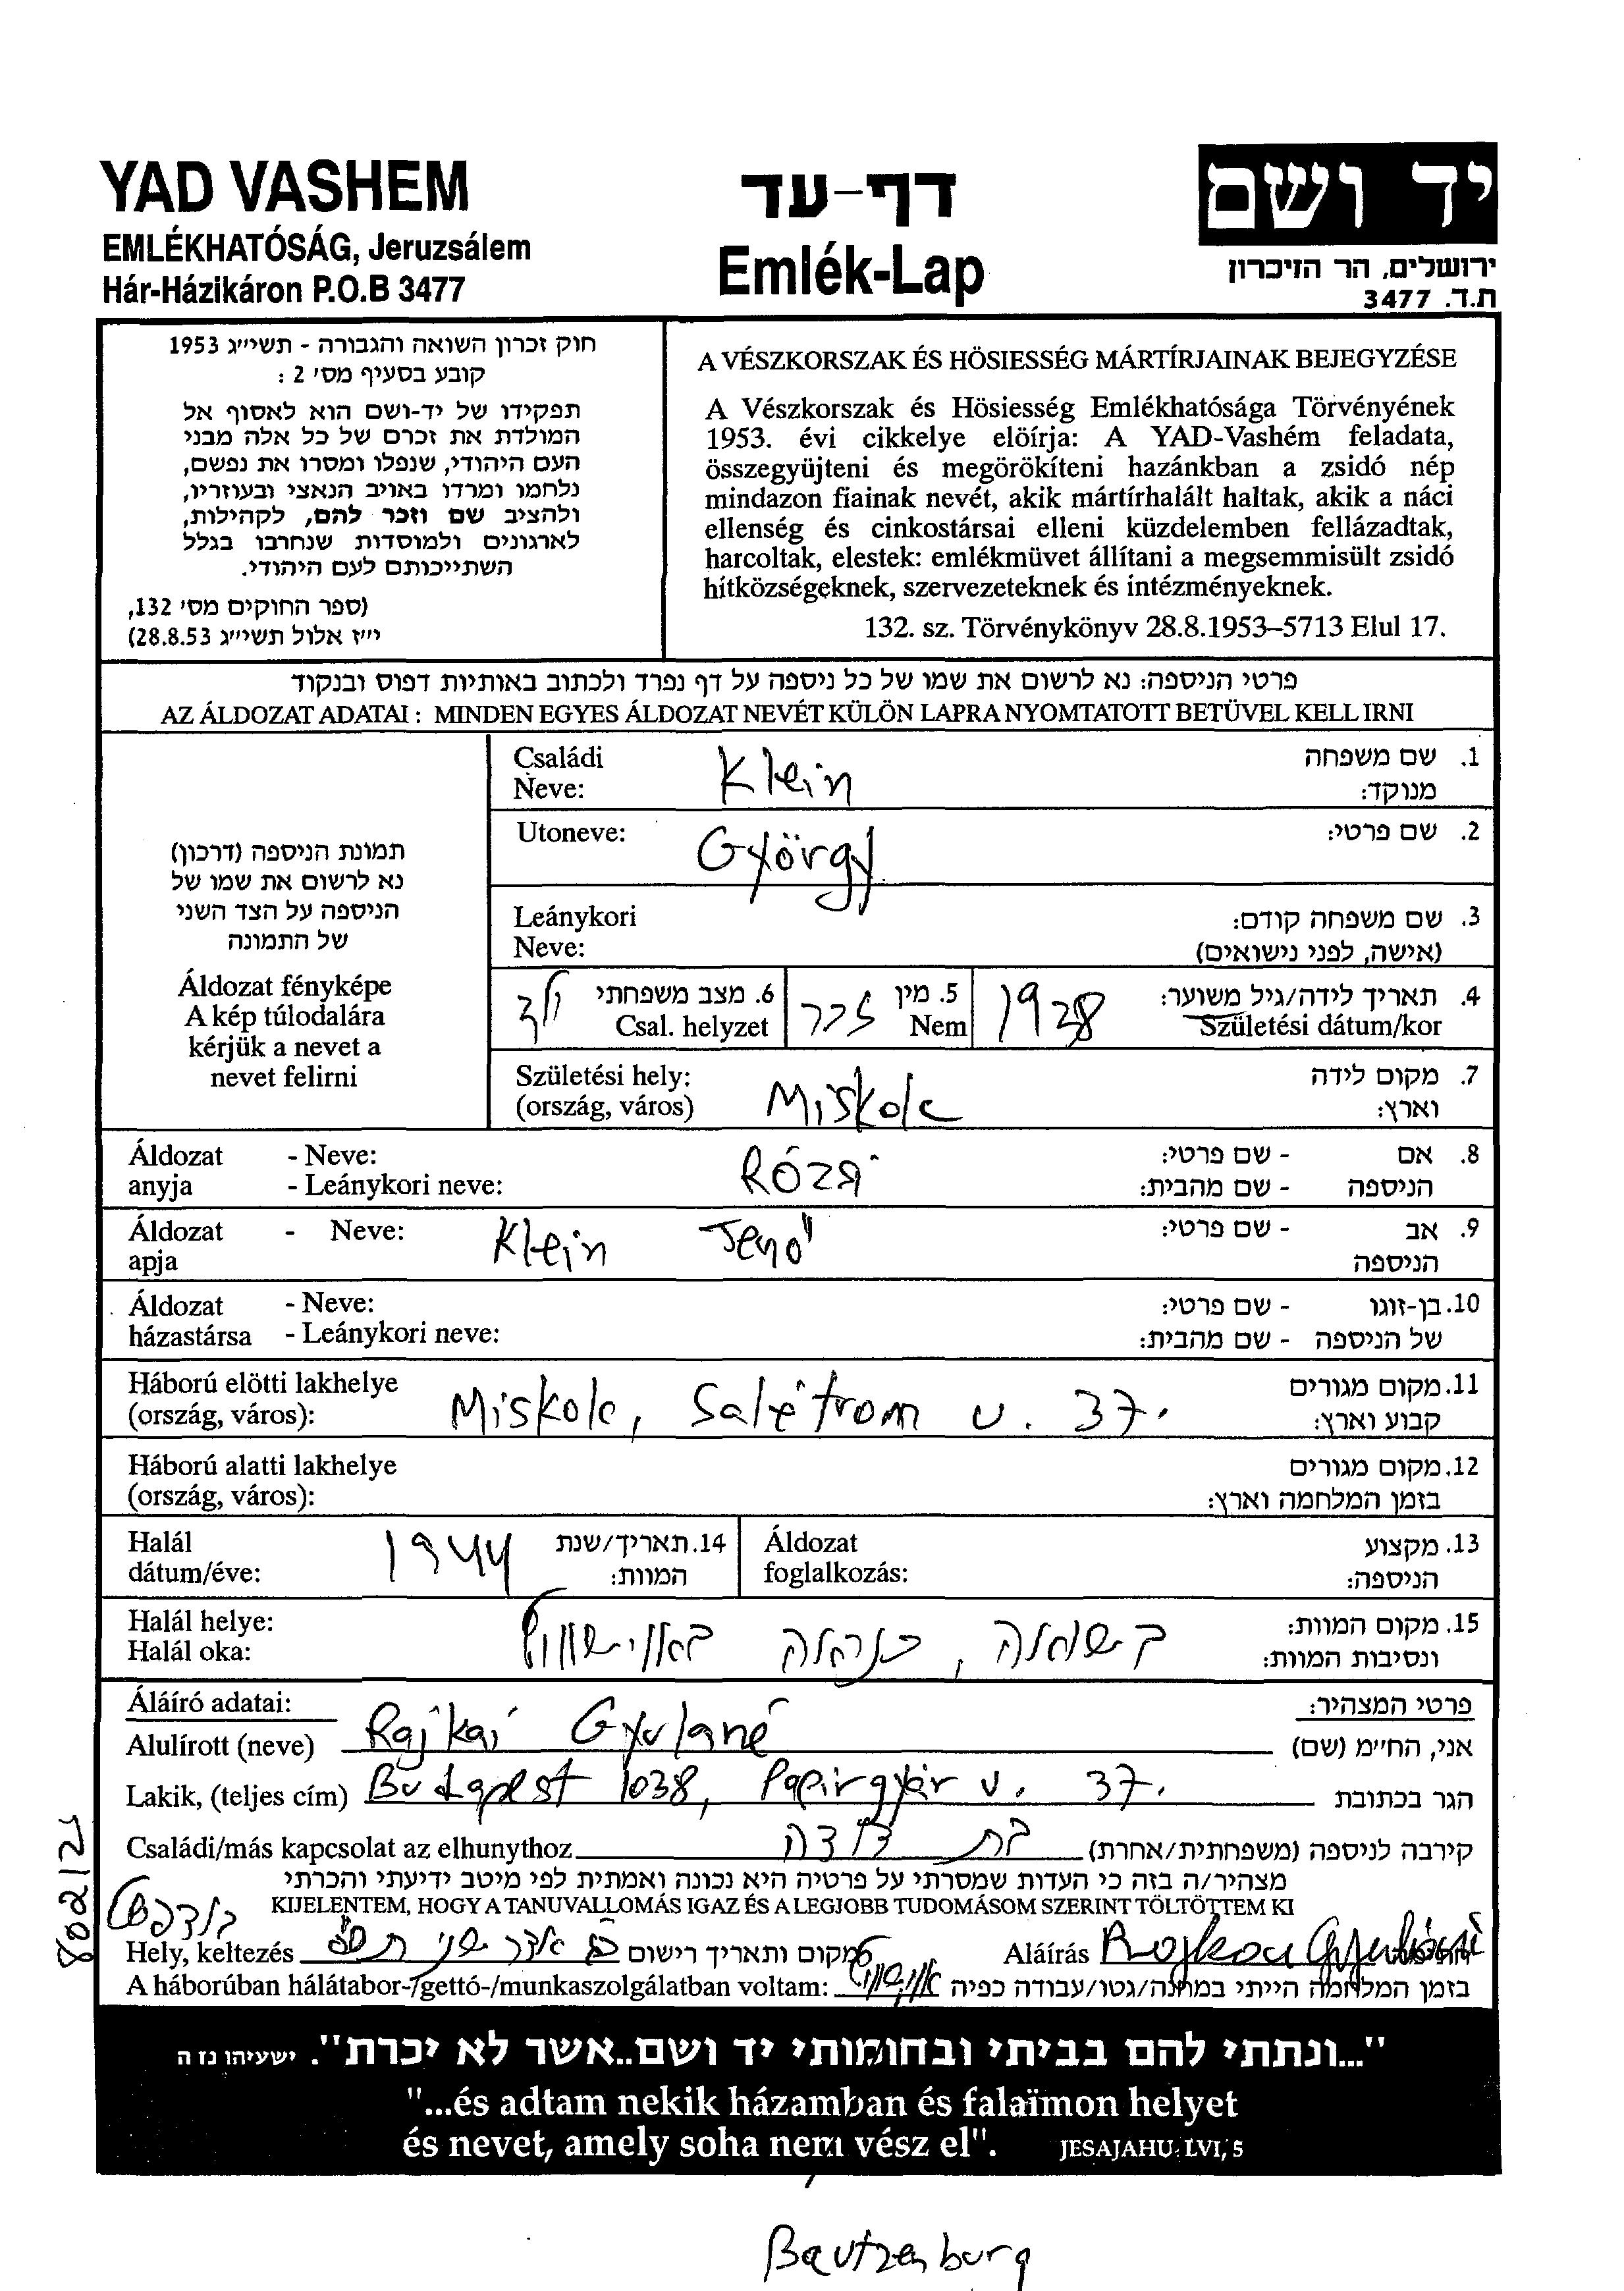 YAD VASHEM
EMLÉKHATÓSÁG, Jeruzsálem
Hár-Házikáron P.O.B 3477
דף-עד
Emlék-Lap
יד ושם
ירושלים, הר הזיכרון
ת.ד. 3477
חוק זכרון השואה והגבורה - תשי״ג 1953
קובע בסעיף מס׳ 2 :
תפקידו של יד-ושם הוא לאסוף אל
המולדת את זכרם של כל אלה מבני
העם היהודי, שנפלו ומסרו את נפשם,
נלחמו ומרדו באויב הנאצי ובעוזריו,
ולהציב שם וזכר להם, לקהילות,
לארגונים ולמוסדות שנחרבו בגלל
השתייכותם לעם היהודי.
(ספר החוקים מס׳ 132,
י״ז אלול תשי״ג 28.8.53)
A VÉSZKORSZAK ÉS HÖSIESSÉG MÁRTÍRJAINAK BEJEGYZÉSE
A Vészkorszak és Hösiesség Emlékhatósága Törvényének
1953. évi cikkelye elöírja: A YAD-Vashém feladata,
összegyüjteni és megörökíteni hazánkban a zsidó nép
mindazon fiainak nevét, akik mártírhalált haltak, akik a náci
ellenség és cinkostársai elleni küzdelemben fellázadtak,
harcoltak, elestek: emlékmüvet állítani a megsemmisült zsidó
hítközségeknek, szervezeteknek és intézményeknek.
132. sz. Törvénykönyv 28.8.1953–5713 Elul 17.
פרטי הניספה: נא לרשום את שמו של כל ניספה על דף נפרד ולכתוב באותיות דפוס ובנקוד
AZ ÁLDOZAT ADATAI : MINDEN EGYES ÁLDOZAT NEVÉT KÜLÖN LAPRA NYOMTATOTT BETÜVEL KELL IRNI
תמונת הניספה (דרכון)
נא לרשום את שמו של
הניספה על הצד השני
של התמונה
Áldozat fényképe
A kép túlodalára
kérjük a nevet a
nevet felirni
Családi
Neve:
Klein
1. שם משפחה
מנוקד:
Utoneve:
György
2. שם פרטי:
Leánykori
Neve:
3. שם משפחה קודם:
(אישה, לפני נישואים)
4. תאריך לידה/גיל משוער:
Születési dátum/kor
1938
5. מין
Nem
זכר
6. מצב משפחתי
Csal. helyzet
ילד
Születési hely:
(ország, város)
Miskolc
7. מקום לידה
וארץ:
Áldozat - Neve:
anyja - Leánykori neve:
Rózsi
8. אם - שם פרטי:
הניספה - שם מהבית:
Áldozat - Neve:
apja
Klein Jenő
9. אב - שם פרטי:
הניספה
Áldozat - Neve:
házastársa - Leánykori neve:
10. בן-זוגו - שם פרטי:
של הניספה - שם מהבית:
Háború elötti lakhelye
(ország, város):
Miskolc, Salétrom u. 37.
11. מקום מגורים
קבוע וארץ:
Háború alatti lakhelye
(ország, város):
12. מקום מגורים
בזמן המלחמה וארץ:
Halál
dátum/éve:
1944
14. תאריך/שנת
המוות:
Áldozat
foglalkozás:
13. מקצוע
הניספה:
Halál helye:
Halál oka:
בשואה, כנראה באושוויץ
15. מקום המוות:
ונסיבות המוות:
Áláíró adatai:
פרטי המצהיר:
Alulírott (neve) Rajkai Gyuláné אני, החי״מ (שם)
Lakik, (teljes cím) Budapest 1038, Papirgyár u. 37. הגר בכתובת
Családi/más kapcsolat az elhunythoz בת דודה קירבה לניספה (משפחתית/אחרת)
מצהיר/ה בזה כי העדות שמסרתי על פרטיה היא נכונה ואמתית לפי מיטב ידיעתי והכרתי
KIJELENTEM, HOGY A TANUVALLOMÁS IGAZ ÉS A LEGJOBB TUDOMÁSOM SZERINT TÖLTÖTTEM KI
בודפשט
Hely, keltezés אדר שני מקום ותאריך רישום
Aláírás Rajkai Gyuláné
A háborúban hálátabor-/gettó-/munkaszolgálatban voltam: אושוויץ בזמן המלחמה הייתי במחנה/גטו/עבודה כפיה
"...ונתתי להם בביתי ובחומותי יד ושם..אשר לא יכרת". ישעיהו נז ה
"...és adtam nekik házamban és falaïmon helyet
és nevet, amely soha nem vész el". JESAJAHU: LVI, 5